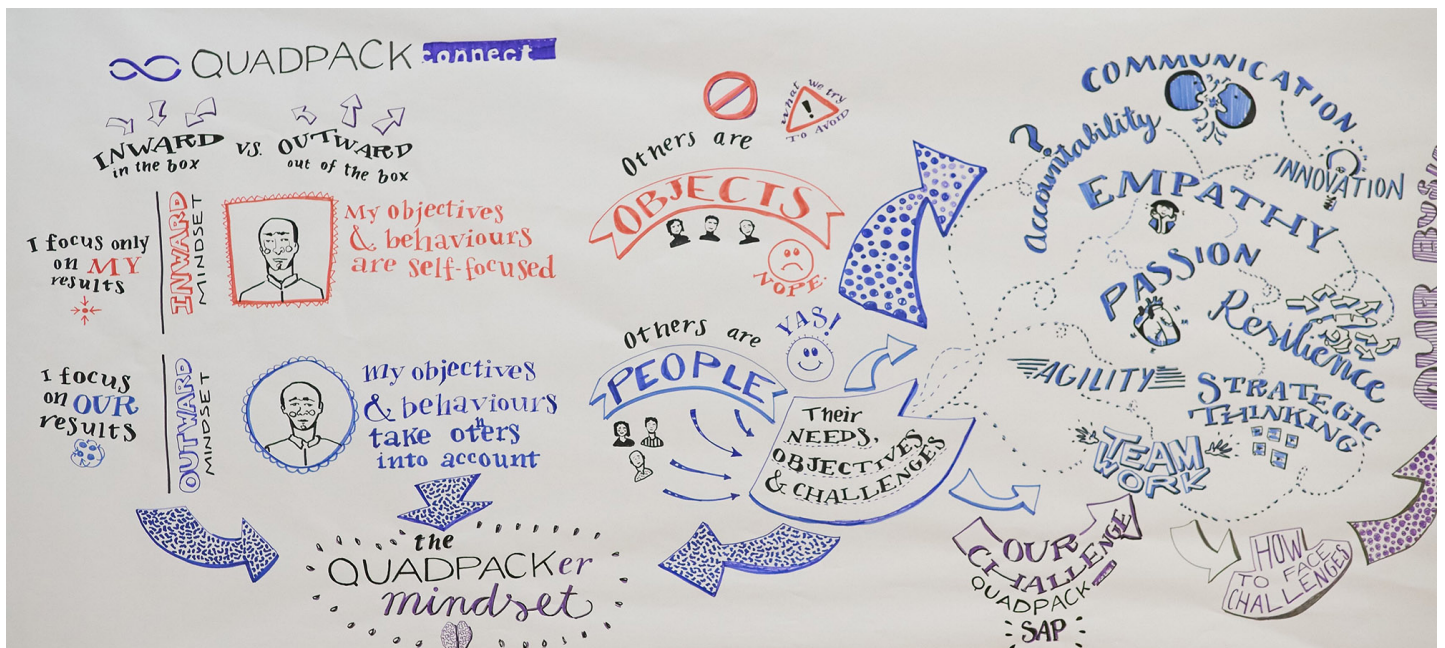 QUADPACK connect
INWARD
in the box
vs.
OUTWARD
out of the box
I focus only
on MY
results
INWARD
MINDSET
My objectives
& behaviours
are self-focused
I focus
on OUR
results
OUTWARD
MINDSET
My objectives
& behaviours
take others
into account
the
QUADPACKer
mindset
what we try
TO AVOID
!
Others are
OBJECTS
NOPE
Others are
YAS!
PEOPLE
Their
NEEDS,
OBJECTIVES
& CHALLENGES
COMMUNICATION
Accountability
INNOVATION
EMPATHY
PASSION
Resilience
AGILITY
STRATEGIC
THINKING
TEAM
WORK
OUR
CHALLENGE
QUADPACK
SAP
HOW
TO FACE
CHALLENGES
OUR